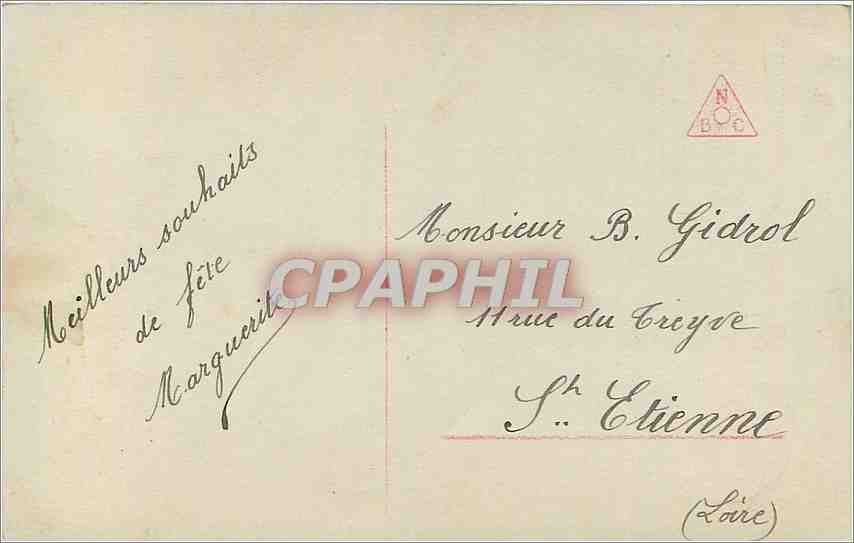 Meilleurs souhaits
de fête
Marguerite
N
B C
Monsieur B. Gidrol
11 rue du Treyve
St. Etienne
(Loire)
CPAPHIL